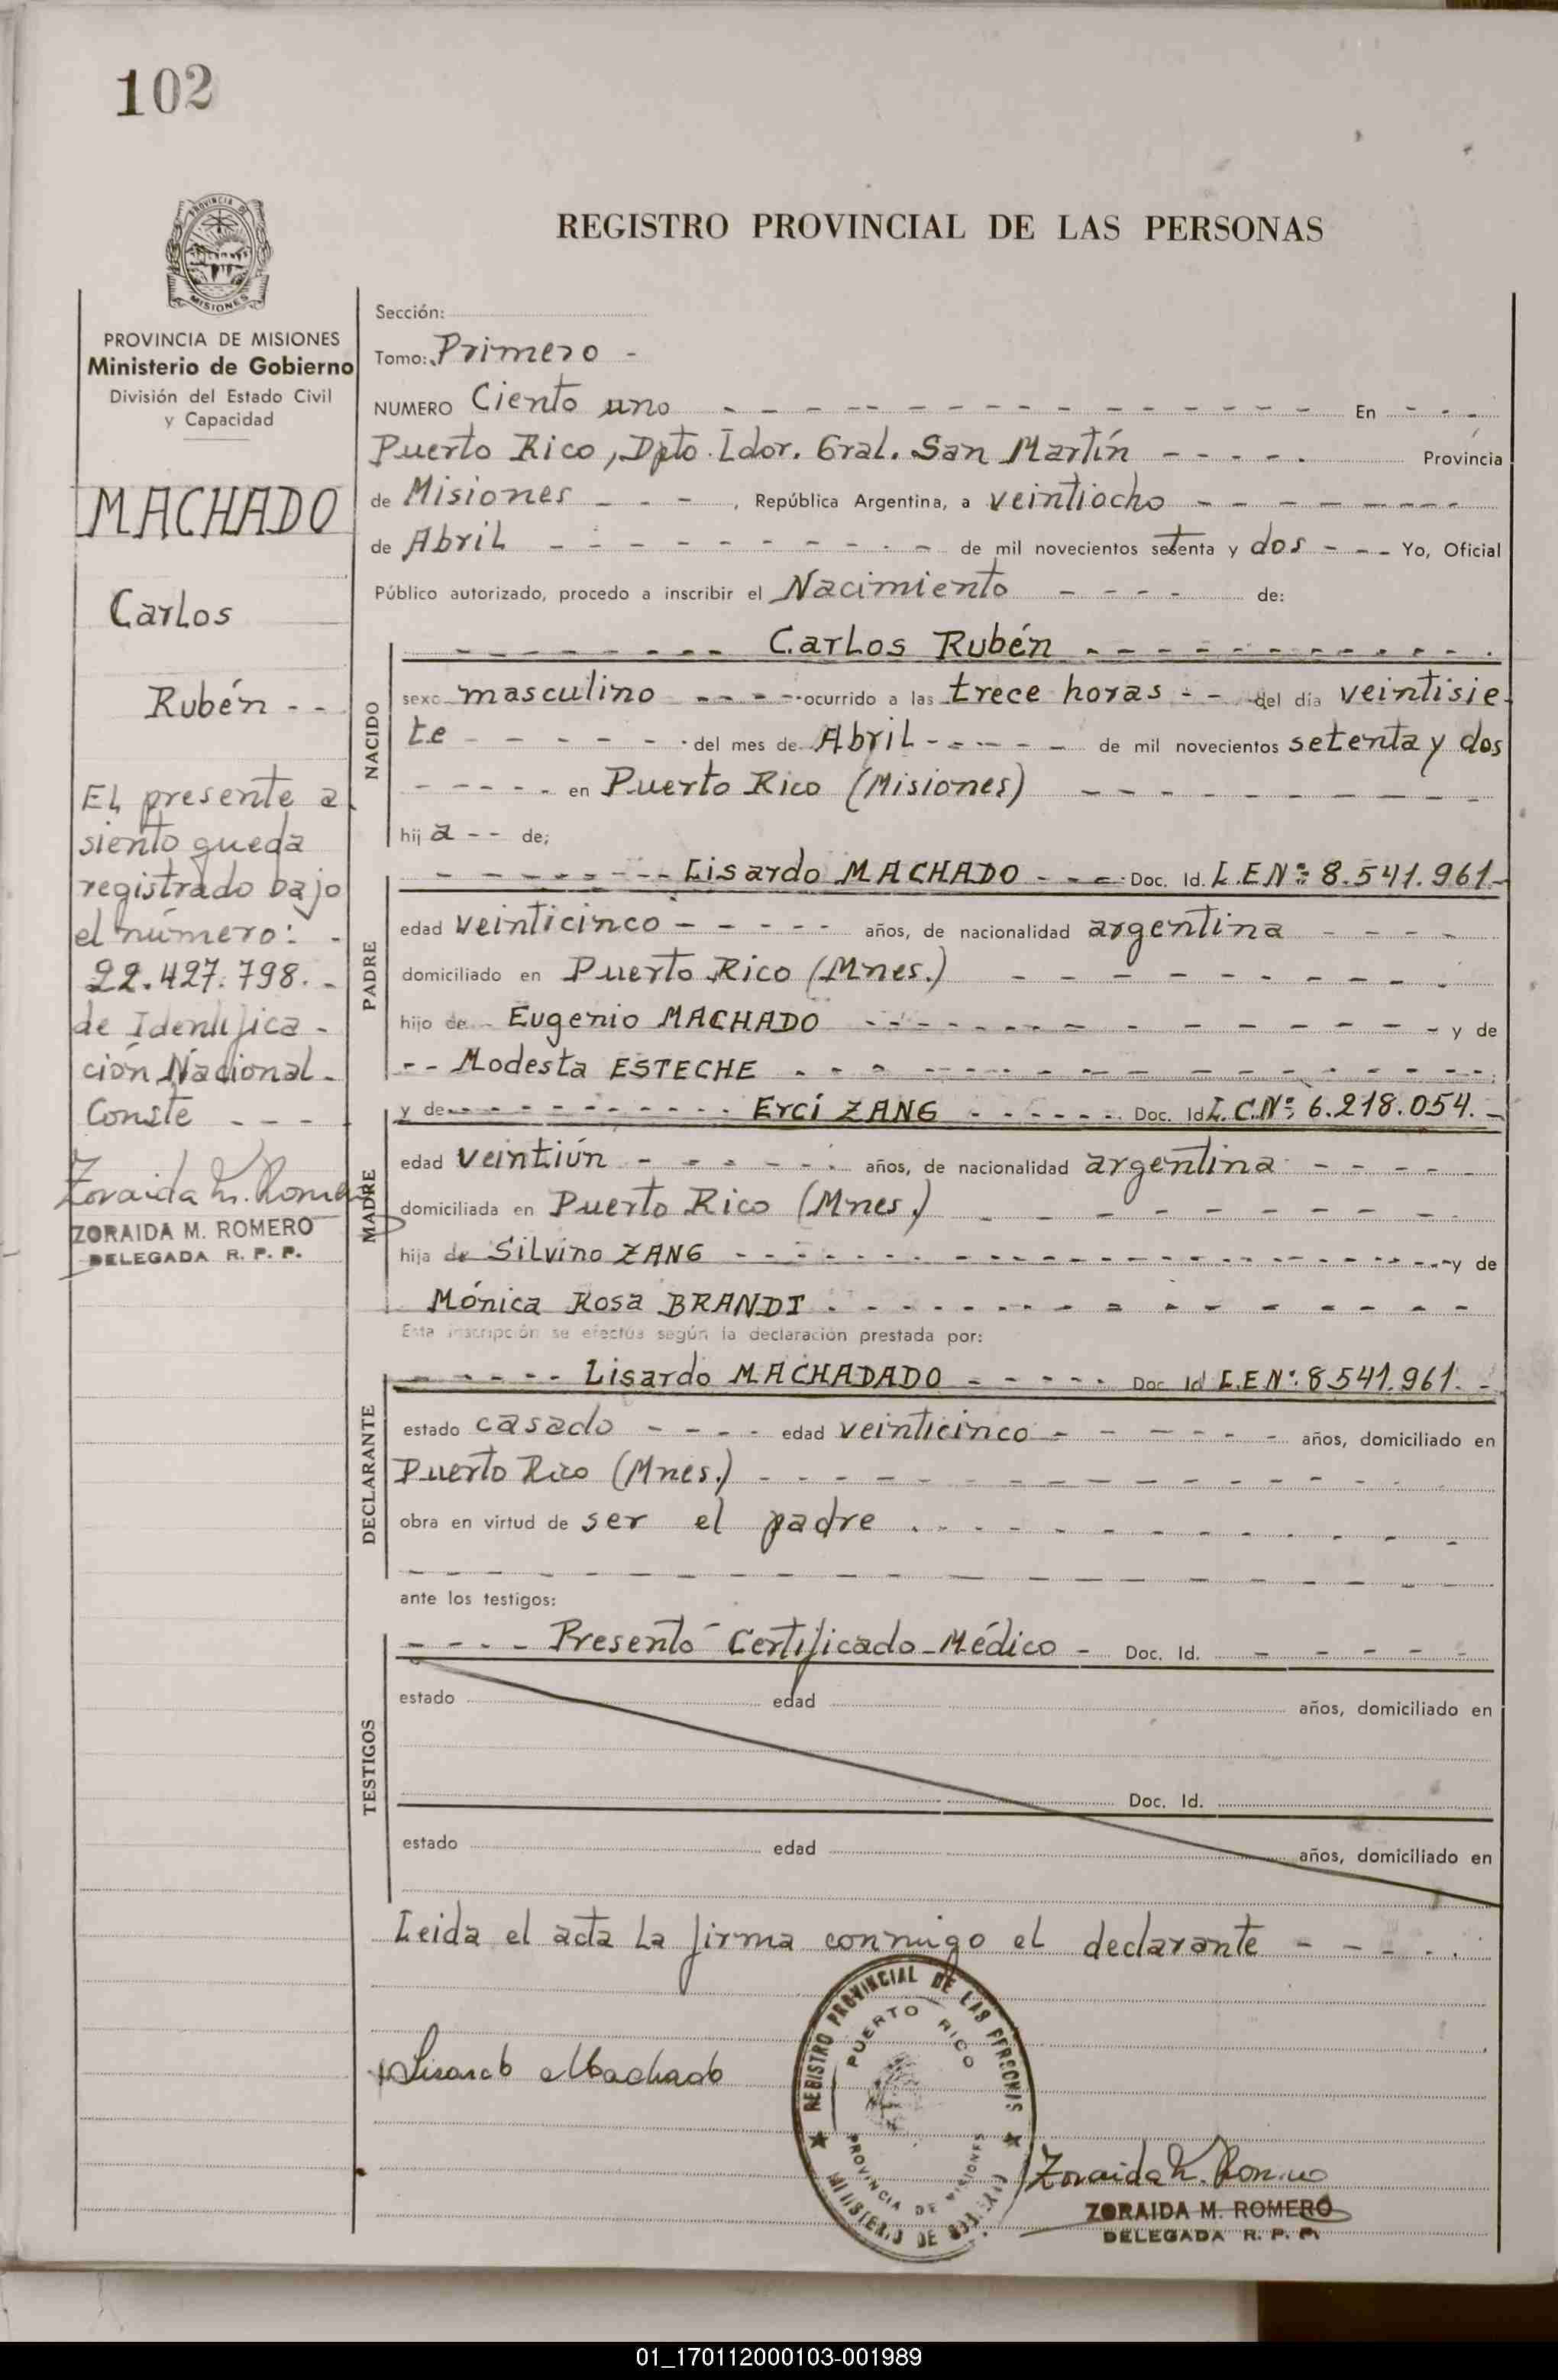 102
PROVINCIA DE
MISIONES
REGISTRO PROVINCIAL DE LAS PERSONAS
PROVINCIA DE MISIONES
Ministerio de Gobierno
División del Estado Civil
y Capacidad
MACHADO
Carlos
Rubén - -
El presente a
siento queda
registrado bajo
el número: -
22.427.798. -
de Identifica -
ción Nacional -
Conste - - -
Zoraida M. Romero
ZORAIDA M. ROMERO
DELEGADA R. P. P.
Sección:
Tomo: Primero -
NUMERO Ciento uno - - - - - - - - - - - - - En - - -
Puerto Rico, Dpto. Ldor. Gral. San Martín - - - - - Provincia
de Misiones - - - , República Argentina, a veintiocho - - - - - - - -
de Abril - - - - - - - - - - de mil novecientos setenta y dos - - - Yo, Oficial
Público autorizado, procedo a inscribir el Nacimiento - - - - de:
NACIDO
- - - - - - - - Carlos Rubén - - - - - - - - - - - -
sexo masculino - - - - - ocurrido a las trece horas - - del día veintisie-
te - - - - - - del mes de Abril - - - - - de mil novecientos setenta y dos
- - - - - en Puerto Rico (Misiones) - - - - - - - - -
hij a - - de;
PADRE
- - - - - - - - Lisardo MACHADO - - - Doc. Id. L.E Nº: 8.541.961-
edad veinticinco - - - - - años, de nacionalidad argentina - - - -
domiciliado en Puerto Rico (Mnes.) - - - - - - - - -
hijo de - Eugenio MACHADO - - - - - - - - - - - - - y de
- - Modesta ESTECHE - - - - - - - - - - - - - - -
MADRE
y de - - - - - - - - - - Erci ZANG - - - - - - Doc. Id L.C.Nº: 6.218.054. -
edad veintiún - - - - - - años, de nacionalidad argentina - - - -
domiciliada en Puerto Rico (Mnes.) - - - - - - - - -
hija de Silvino ZANG - - - - - - - - - - - - - - - - - y de
Mónica Rosa BRANDT - - - - - - - - - - - - - -
Esta inscripción se efectúa según la declaración prestada por:
DECLARANTE
- - - - - - Lisardo MACHADADO - - - - - Doc. Id L.E Nº: 8541.961. -
estado casado - - - - edad veinticinco - - - - - - - años, domiciliado en
Puerto Rico (Mnes.) - - - - - - - - - - - - - -
obra en virtud de ser el padre - - - - - - - - - - -
- - - - - - - - - - - - - - - - - -
ante los testigos:
TESTIGOS
- - - - Presentó Certificado Médico - Doc. Id. - - - - -
estado edad años, domiciliado en
Doc. Id.
estado edad años, domiciliado en
Leida el acta la firma conmigo el declarante - - - - -
REGISTRO PROVINCIAL DE LAS PERSONAS
PUERTO RICO
PROVINCIA DE MISIONES
MINISTERIO DE GOBIERNO
Lisardo Machado
Zoraida M. Romero
ZORAIDA M. ROMERO
DELEGADA R. P. P.
01_170112000103-001989